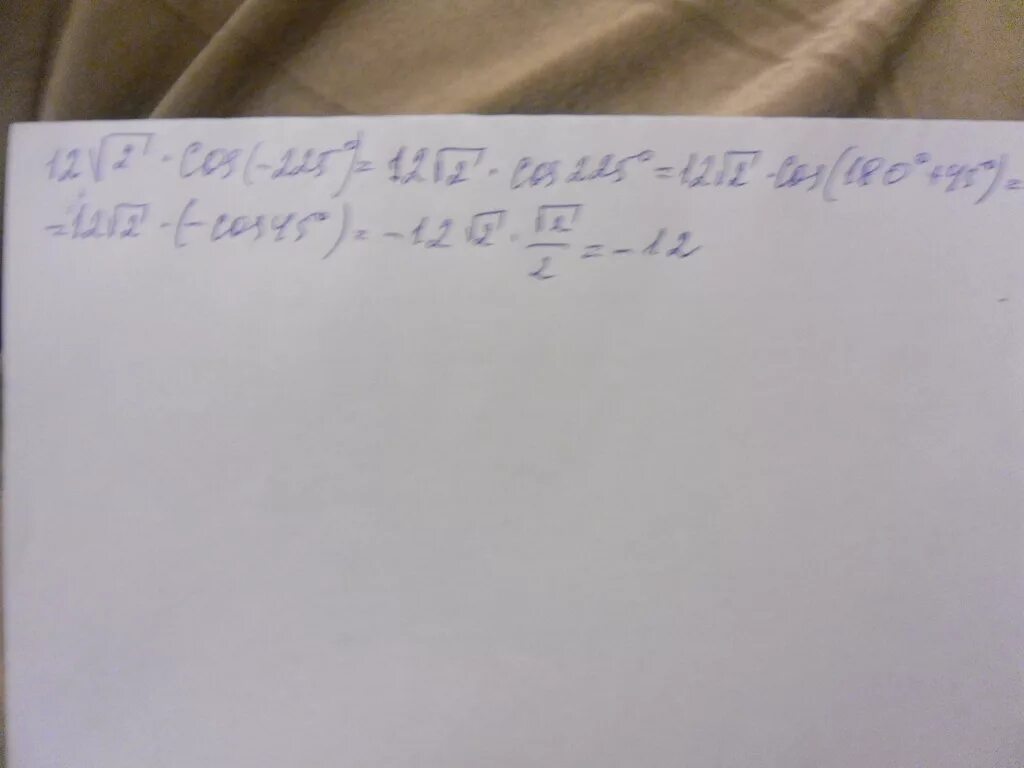 12√2 · cos(-225°) = 12√2 · cos225° = 12√2 · cos(180°+45°) =
= 12√2 · (-cos45°) = -12√2 · √2/2 = -12